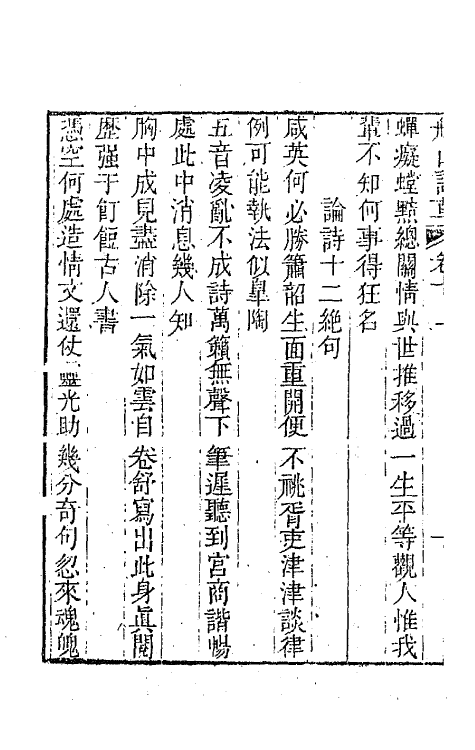 蟬癡螳黠總關情與世推移過一生平等觀人惟我
輩不知何事得狂名
論詩十二絕句
咸英何必勝簫韶生面重開便不祧胥吏津津談律
例可能執法似臯陶
五音凌亂不成詩萬籟無聲下筆遲聽到宮商諧暢
處此中消息幾人知
胸中成見盡消除一氣如雲自卷舒寫出此身眞閱
歷强于飣餖古人書
憑空何處造情文還仗靈光助幾分奇句忽來魂魄